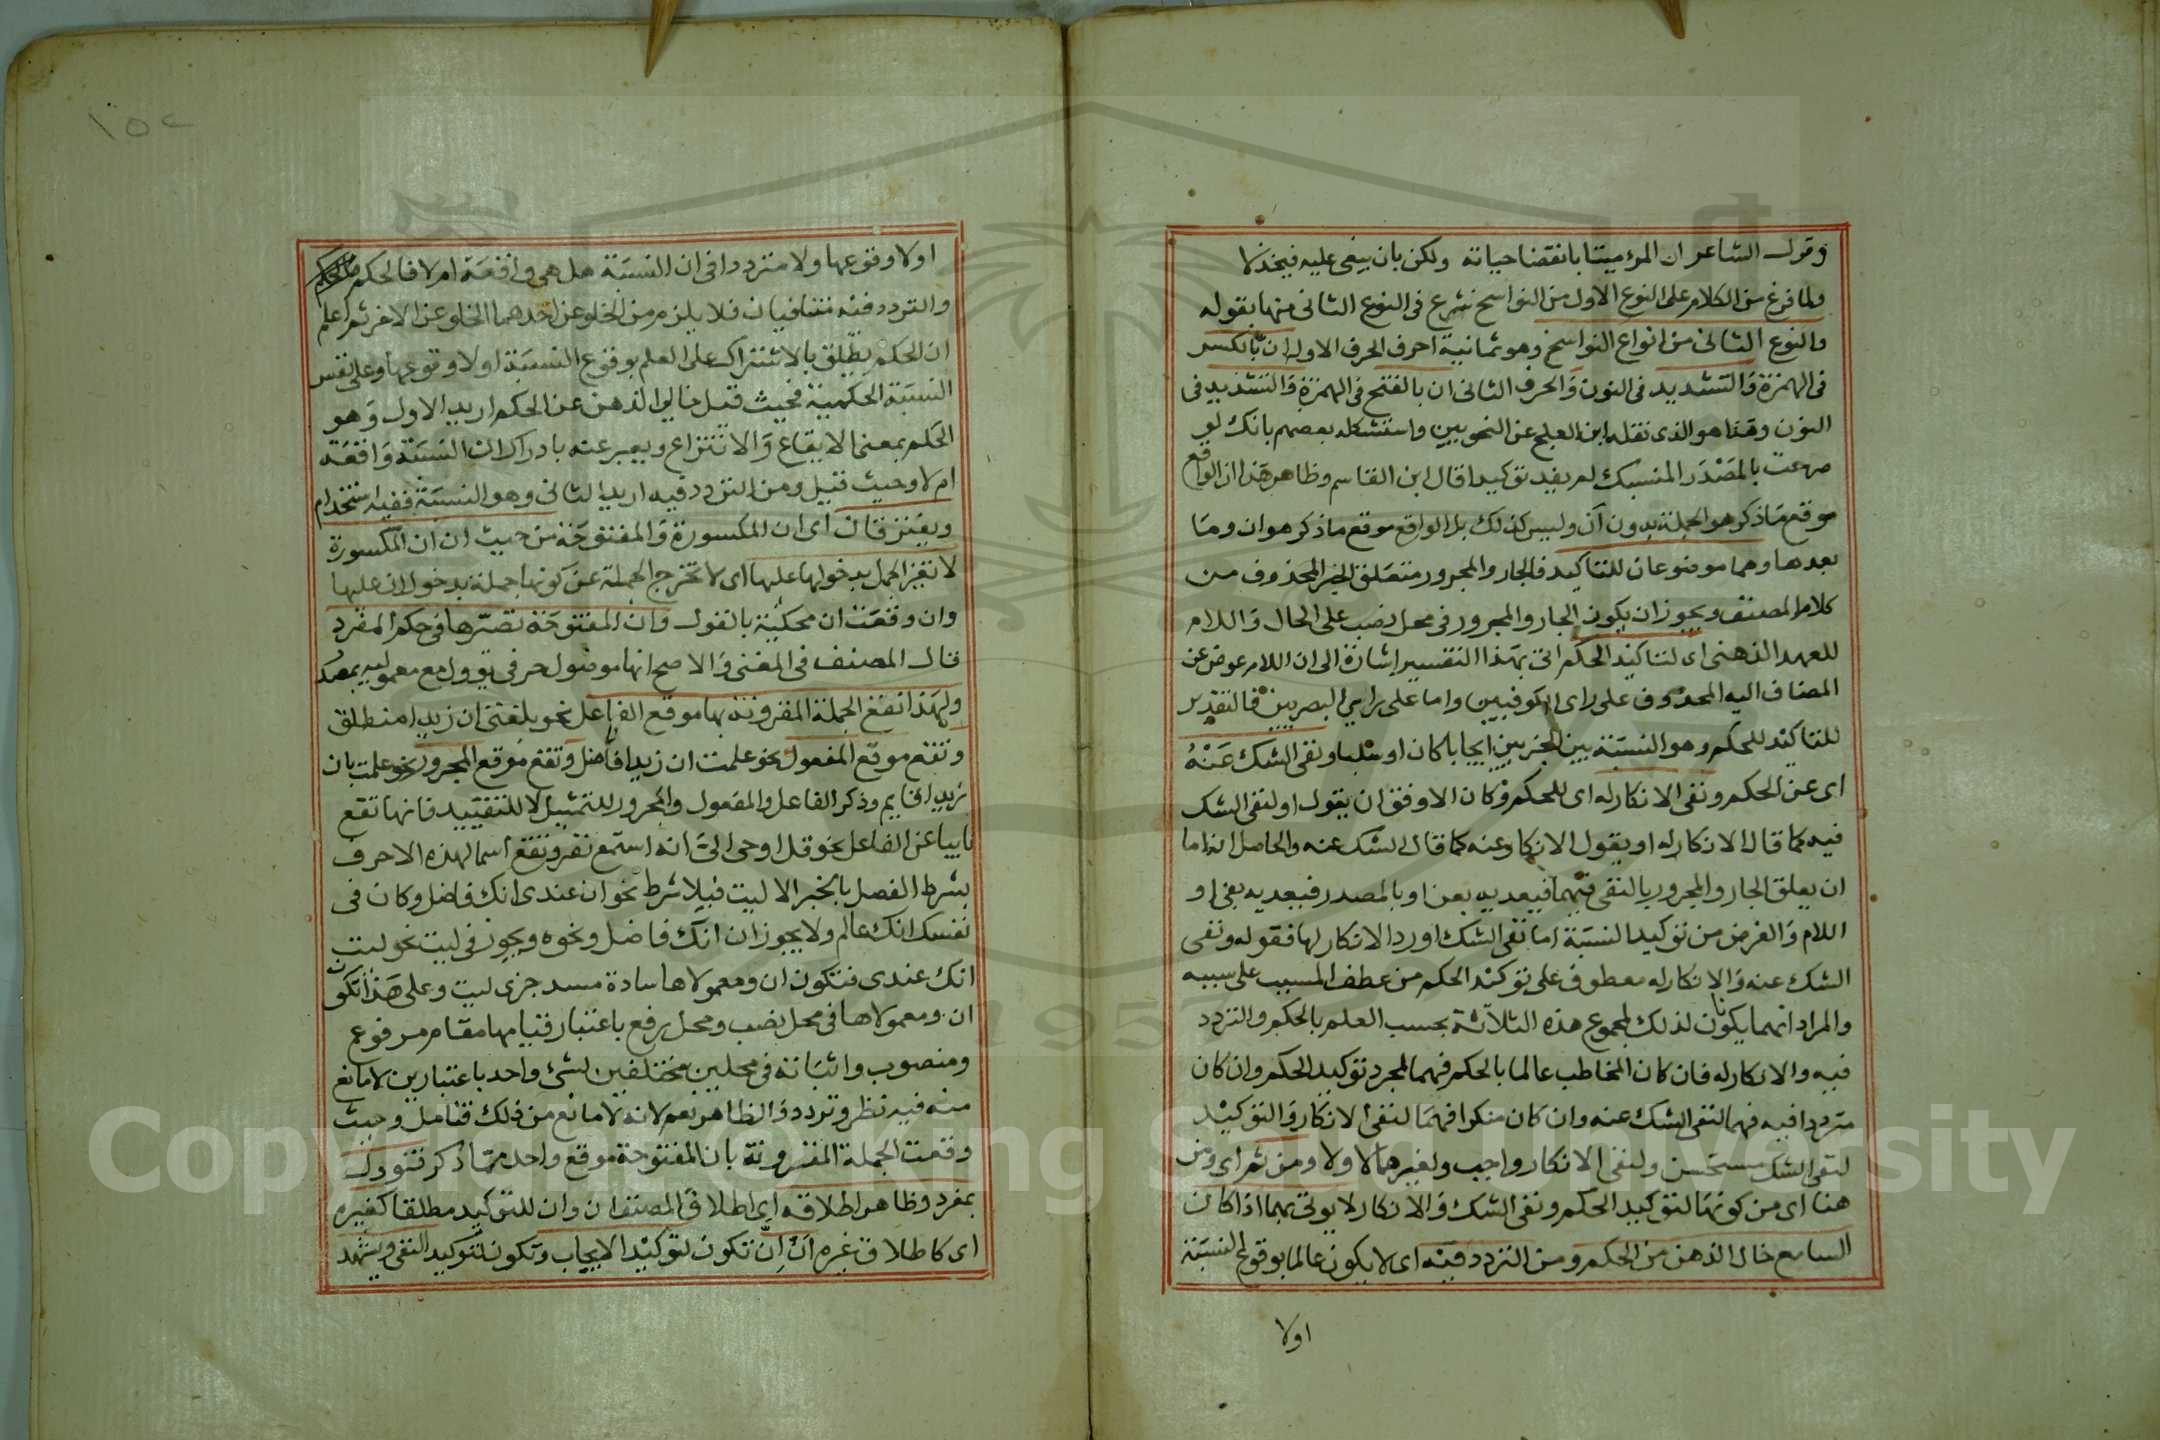 وقول الشاعر ان المرء ميتا بانقضا حياته ولكن بان يبغى عليه فيخذلا
ولما فرغ من الكلام على النوع الاول من النواسخ شرع في النوع الثاني منها بقوله
والنوع الثاني من انواع النواسخ وهو ثمانية احرف الحرف الاول ان بالكسر
في الهمزة والتشديد في النون والحرف الثاني ان بالفتح في الهمزة والتشديد في
النون وهذا هو الذي نقله ابن العلج عن النحويين واستشكله بعضهم بانك لو
صرحت بالمصدر المنسبك لم يفد توكيدا قال ابن القاسم وظاهر هذا ان الواقع
موقع ما ذكر هو الجملة بدون ان وليس كذلك بل الواقع موقع ما ذكر هو ان وما
بعدها وهما موضوعان للتاكيد فالجار والمجرور متعلق الخبر المحذوف من
كلام المصنف ويجوز ان يكون الجار والمجرور في محل نصب على الحال واللام
للعهد الذهني اى لتاكيد الحكم اتى بهذا التفسير إشارة الى ان اللام عوض عن
المضاف اليه المحذوف على راى الكوفيين واما على راي البصريين فالتقدير
للتاكيد للحكم وهو النسبة بين الجزءين إيجابا كان او سلبا ونفى الشك عنه
اى عن الحكم ونفى الانكار له اى للحكم وكان الاوفق ان يقول او لنفى الشك
فيه كما قال الانكار له او يقول الانكار عنه كما قال الشك عنه والحاصل انه اما
ان يعلق الجار والمجرور بالنفى فيهما فيعديه بعن او بالمصدر فيعديه بفى او
اللام والغرض من توكيد النسبة اما نفى الشك او رد الانكار لها فقوله ونفى
الشك عنه والانكار له معطوف على توكيد الحكم من عطف المسبب على سببه
والمراد انهما يكونان لذلك لمجموع هذه الثلاثة بحسب العلم بالحكم والتردد
فيه والانكار له فان كان المخاطب عالما بالحكم فهما لمجرد توكيد الحكم وان كان
مترددا فيه فهما لنفى الشك عنه وان كان منكرا فهما لنفى الانكار والتوكيد
لنفى الشك مستحسن ولنفى الانكار واجب ولغيرهما لا ولا ومن ثم اى ومن
هنا اى من كونها لتوكيد الحكم ونفى الشك والانكار لا يوتى بهما اذا كان
السامع خال الذهن من الحكم ومن التردد فيه اى لا يكون عالما بوقوع النسبة
اولا
١٥٢
اولا وقوعها ولا مترددا في ان النسبة هل هي واقعة ام لا فالحكم
والتردد فيه متنافيان فلا يلزم من الخلو عن احدهما الخلو عن الاخر ثم اعلم
ان الحكم يطلق بالاشتراك على العلم بوقوع النسبة اولا وقوعها وعلى نفس
النسبة الحكمية فحيث قيل خالي الذهن عن الحكم اريد الاول وهو
الحكم بمعنى الايقاع والانتزاع ويعبر عنه بادراك ان النسبة واقعة
ام لا وحيث قيل ومن التردد فيه اريد الثاني وهو النسبة ففيه استخدام
ويفترقان اى ان المكسورة والمفتوحة من حيث ان ان المكسورة
لا تغير الجمل بدخولها عليها اى لا تخرج الجملة عن كونها جملة بدخول ان عليها
وان وقعت ان محكية بالقول وان المفتوحة تصيرها في حكم المفرد
قال المصنف في المغنى والاصح انها موصول حرفي يوول مع معموليه بمصدر
ولهذا تقع الجملة المقرونة بها موقع الفاعل نحو بلغنى ان زيدا منطلق
وتقع موقع المفعول نحو علمت ان زيدا فاضل وتقع موقع المجرور نحو علمت بان
زيدا قايم وذكر الفاعل والمفعول والمجرور للتمثيل لا للتقييد فانها تقع
نايبا عن الفاعل نحو قل اوحى الى انه استمع نفر وتقع اسما لهذه الاحرف
بشرط الفصل بالخبر الا ليت فبلا شرط نحو ان عندى انك فاضل وكان في
نفسك انك عالم ولا يجوز ان انك فاضل ونحوه ويجوز في ليت نحو ليت
انك عندى فتكون ان ومعمولاها سادة مسد جزى ليت وعلى هذا تكون
ان ومعمولاها في محل نصب ومحل رفع باعتبار قيامها مقام مرفوع
ومنصوب واثباته في محلين مختلفين لشئ واحد باعتبارين لا مانع
منه فيه نظر وتردد والظاهر نعم لانه لا مانع من ذلك فتامل وحيث
وقعت الجملة المقرونة بان المفتوحة موقع واحد مما ذكر فتوول
بمفرد وظاهر اطلاقه اى اطلاق المصنف ان وان للتوكيد مطلقا كغيره
اى كاطلاق غيره ان ان تكون لتوكيد الايجاب وتكون لتوكيد النفى ويشهد
Copyright © King Saud University
1957